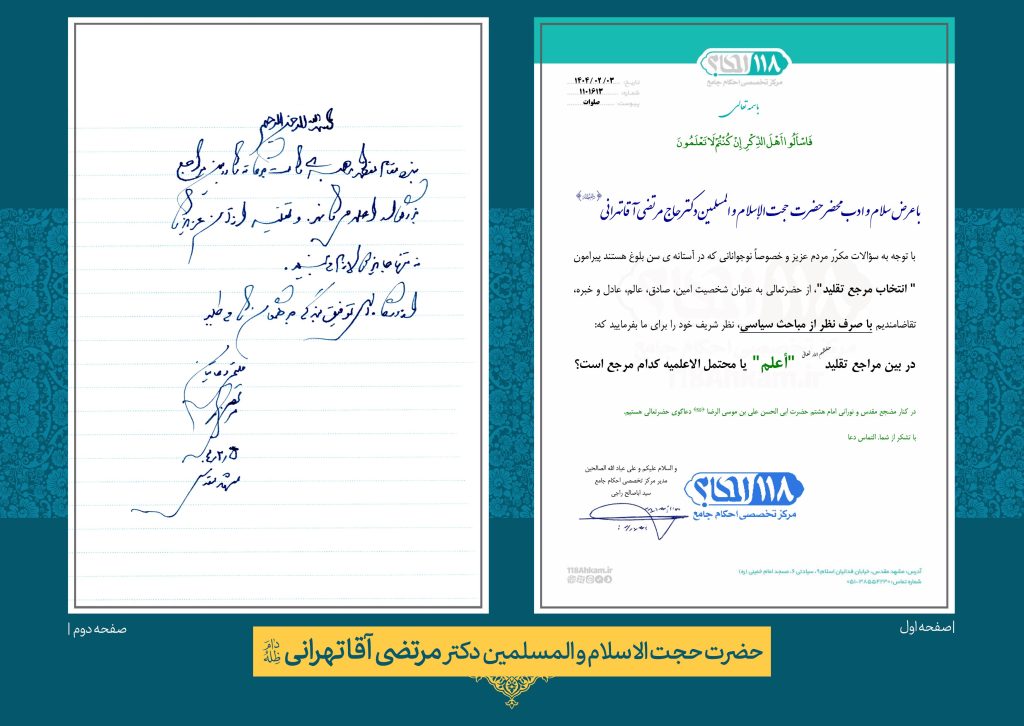 ۱۱۸ احکام
مرکز تخصصی احکام جامع
تاریخ: ۱۴۰۴/۰۲/۰۳
شماره: ۱۱۰۱۶۱۳
پیوست: صلوات
باسمه تعالی
فَاسْأَلُوا أَهْلَ الذِّكْرِ إِنْ كُنْتُمْ لَا تَعْلَمُونَ
با عرض سلام و ادب محضر حضرت حجت الإسلام و المسلمین دکتر حاج مرتضی آقاتهرانی
با توجه به سؤالات مکرّر مردم عزیز و خصوصاً نوجوانانی که در آستانه ی سن بلوغ هستند پیرامون
" انتخاب مرجع تقلید"، از حضرتعالی به عنوان شخصیت امین، صادق، عالم، عادل و خبره،
تقاضامندیم با صرف نظر از مباحث سیاسی، نظر شریف خود را برای ما بفرمایید که:
در بین مراجع تقلید "أعلم" یا محتمل الاعلمیه کدام مرجع است؟
در کنار مضجع مقدس و نورانی امام هشتم حضرت ابی الحسن علی بن موسی الرضا دعاگوی حضرتعالی هستیم.
با تشکر از شما. التماس دعا
و السلام علیکم و علی عباد الله الصالحین
مدیر مرکز تخصصی احکام جامع
سید اباصالح راجی
۱۱۸ احکام
مرکز تخصصی احکام جامع
118Ahkam.ir
آدرس: مشهد مقدس، خیابان فدائیان اسلام۹، سیادتی ۶، مسجد امام خمینی (ره)
شماره تماس: ۰۵۱-۳۸۵۵۴۲۳۰
|صفحه اول
بسم الله الرحمن الرحیم
بنده مقام معظم رهبری
بزرگوار اعلم می دانم. و تقلید از آن عزیز را
نه تنها جایز لازم می دانم.
توفیق بندگی
ملتمس دعا
مرتضی
مشهد مقدس
صفحه دوم |
حضرت حجت الاسلام و المسلمین دکتر مرتضی آقاتهرانی دام ظله